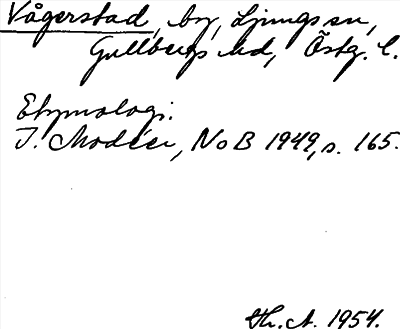 Vågerstad, by, Ljungs sn,
Gullbergs hd, Östg. l.
Etymologi.
I. Modéer, NoB 1949, s. 165.
1954.